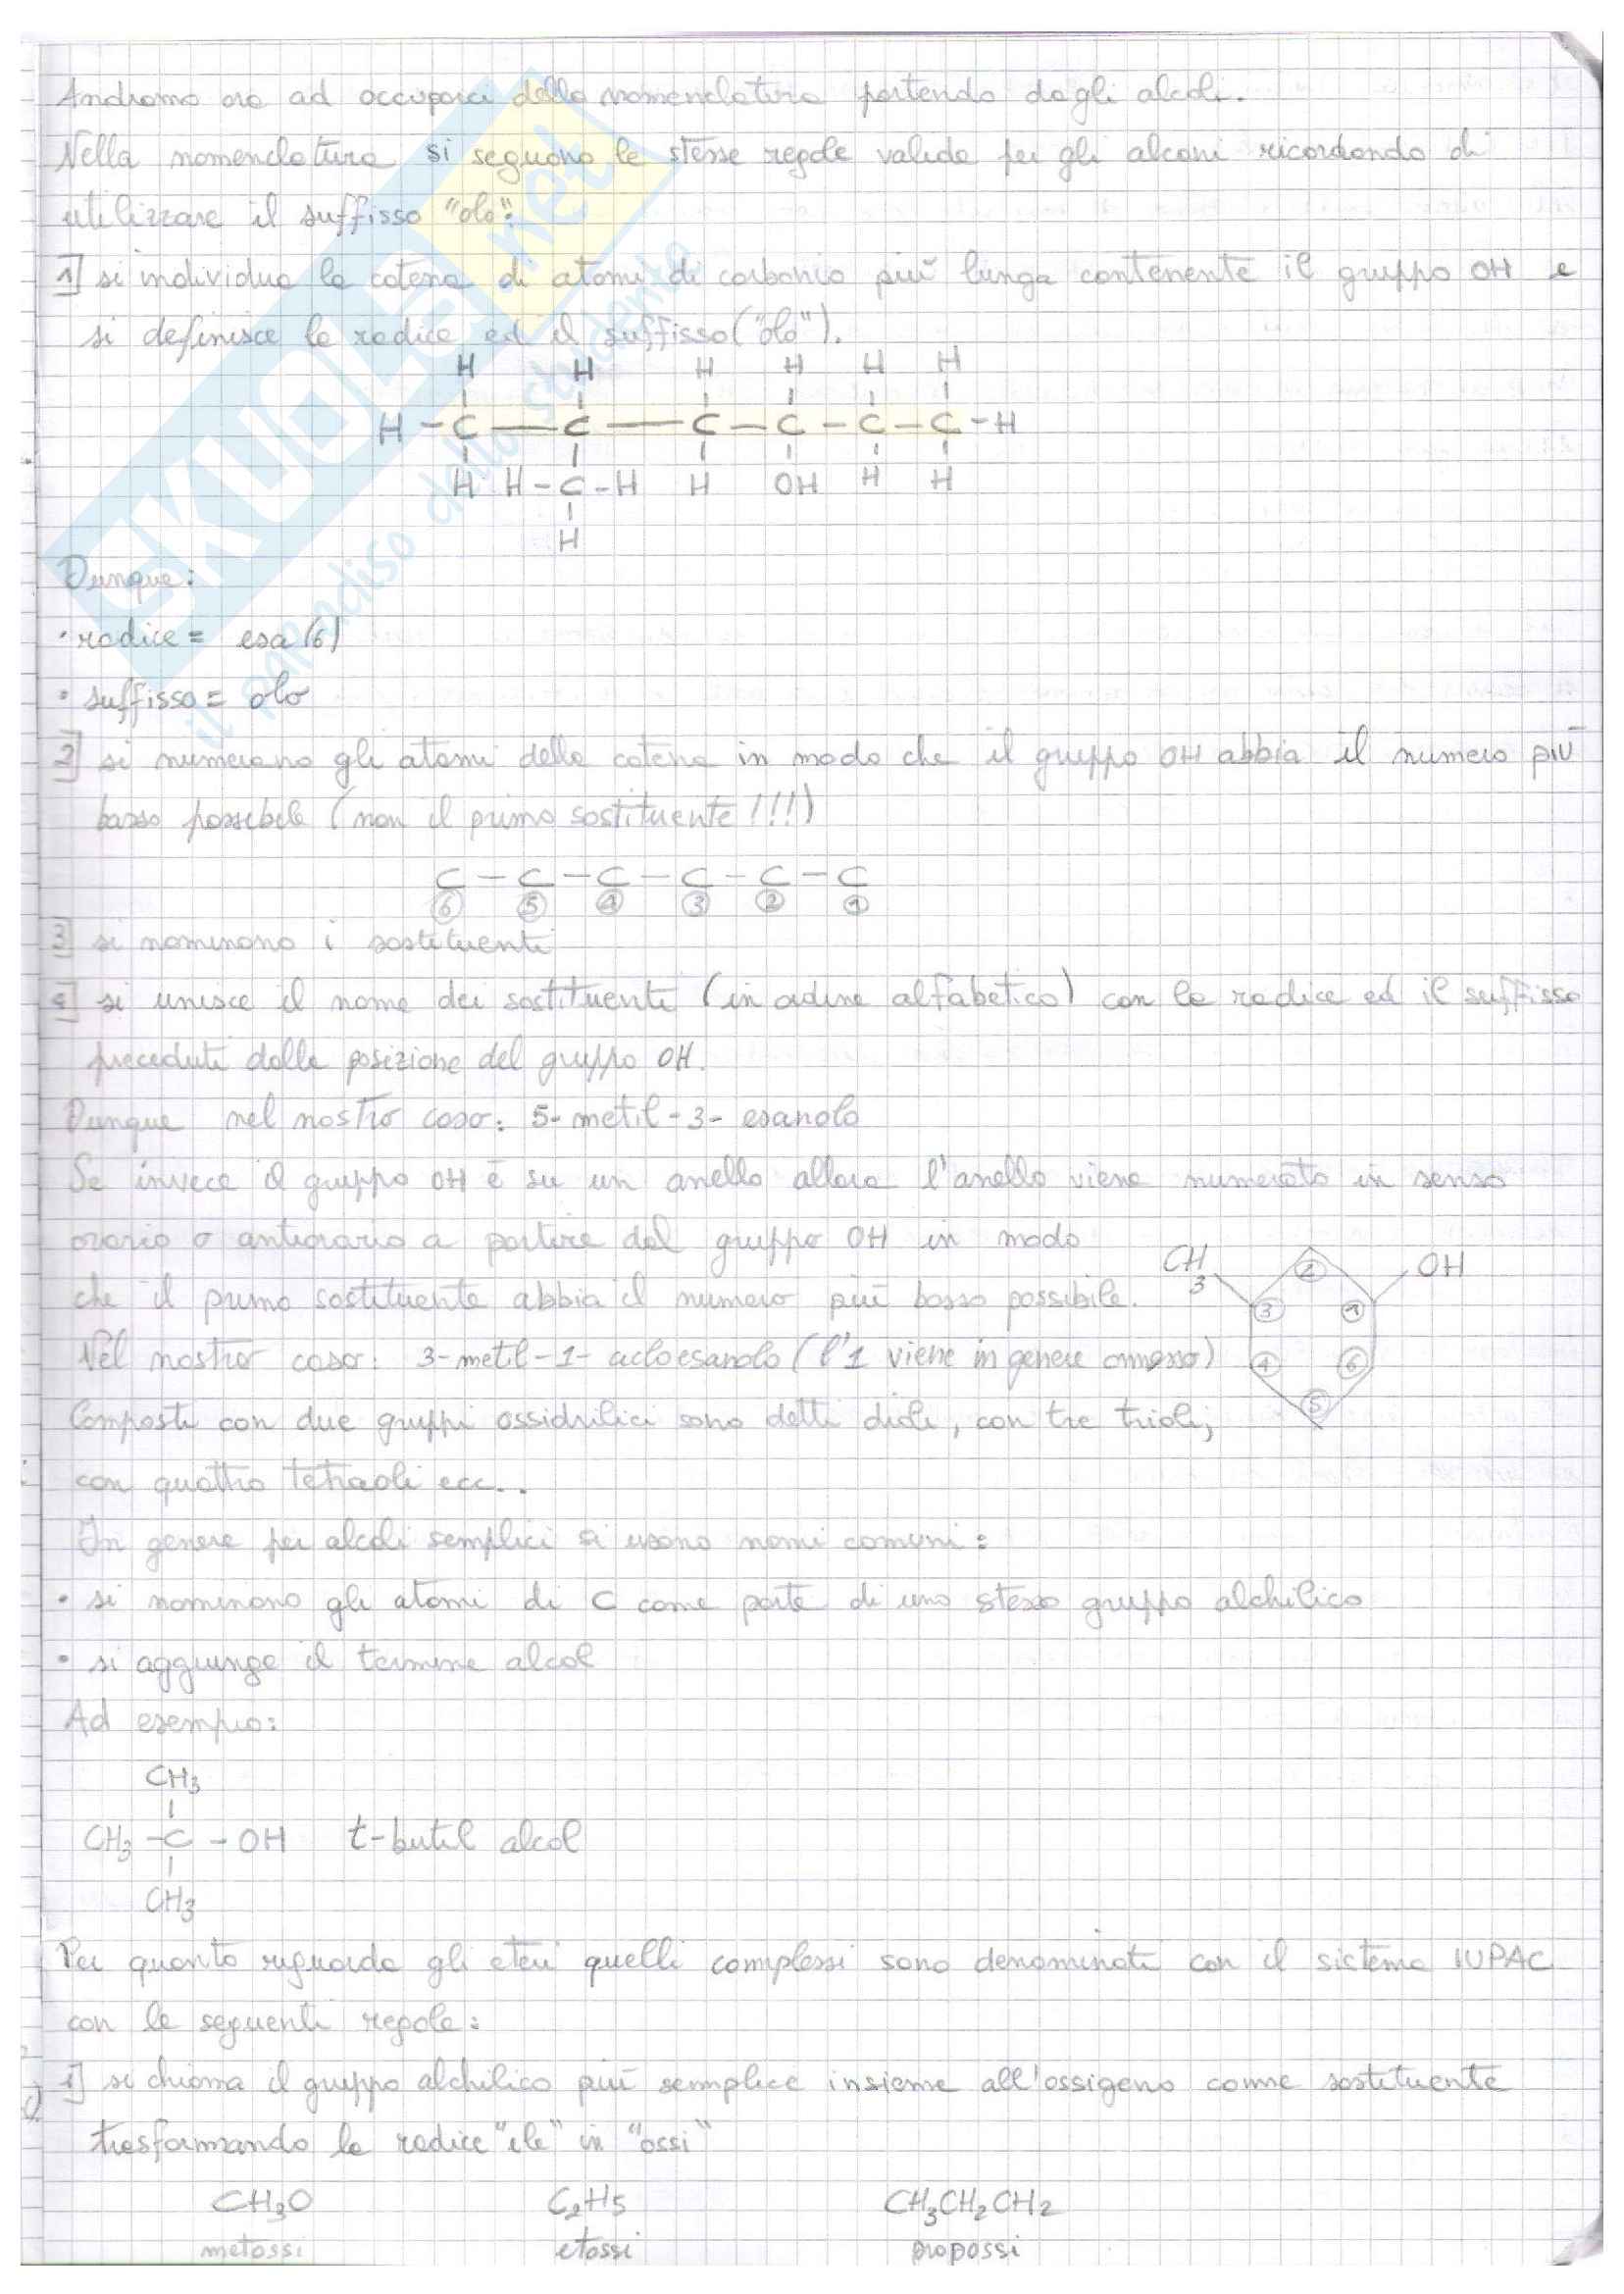 Andremo ora ad occuparci della nomenclatura partendo dagli alcoli.
Nella nomenclatura si seguono le stesse regole valide per gli alcani ricordando di
utilizzare il suffisso "olo":
1] si individua la catena di atomi di carbonio più lunga contenente il gruppo OH e
si definisce la radice ed il suffisso ("olo").
H H H H H H
H - C — C — C - C - C - C - H
H H - C - H H OH H H
H
Dunque:
· radice = esa (6)
· suffisso = olo
2] si numerano gli atomi della catena in modo che il gruppo OH abbia il numero più
basso possibile (non il primo sostituente!!!)
C - C - C - C - C - C
6 5 4 3 2 1
3] si nominano i sostituenti
4] si unisce il nome dei sostituenti (in ordine alfabetico) con la radice ed il suffisso
preceduti dalla posizione del gruppo OH.
Dunque nel nostro caso: 5-metil-3-esanolo
Se invece il gruppo OH è su un anello allora l'anello viene numerato in senso
orario o antiorario a partire dal gruppo OH in modo
che il primo sostituente abbia il numero più basso possibile.
CH3 OH
2
3 1
4 6
5
Nel nostro caso: 3-metil-1-cicloesanolo (l'1 viene in genere omesso)
Composti con due gruppi ossidrilici sono detti dioli, con tre trioli,
con quattro tetraoli ecc..
In genere per alcoli semplici si usano nomi comuni:
· si nominano gli atomi di C come parte di uno stesso gruppo alchilico
· si aggiunge il termine alcol
Ad esempio:
CH3
CH3 - C - OH t-butil alcol
CH3
Per quanto riguarda gli eteri quelli complessi sono denominati con il sistema IUPAC
con le seguenti regole:
1] si chiama il gruppo alchilico più semplice insieme all'ossigeno come sostituente
trasformando la radice "ile" in "ossi"
CH3O C2H5 CH3CH2CH2
metossi etossi propossi
SKUOLA.net
il paradiso dello studente